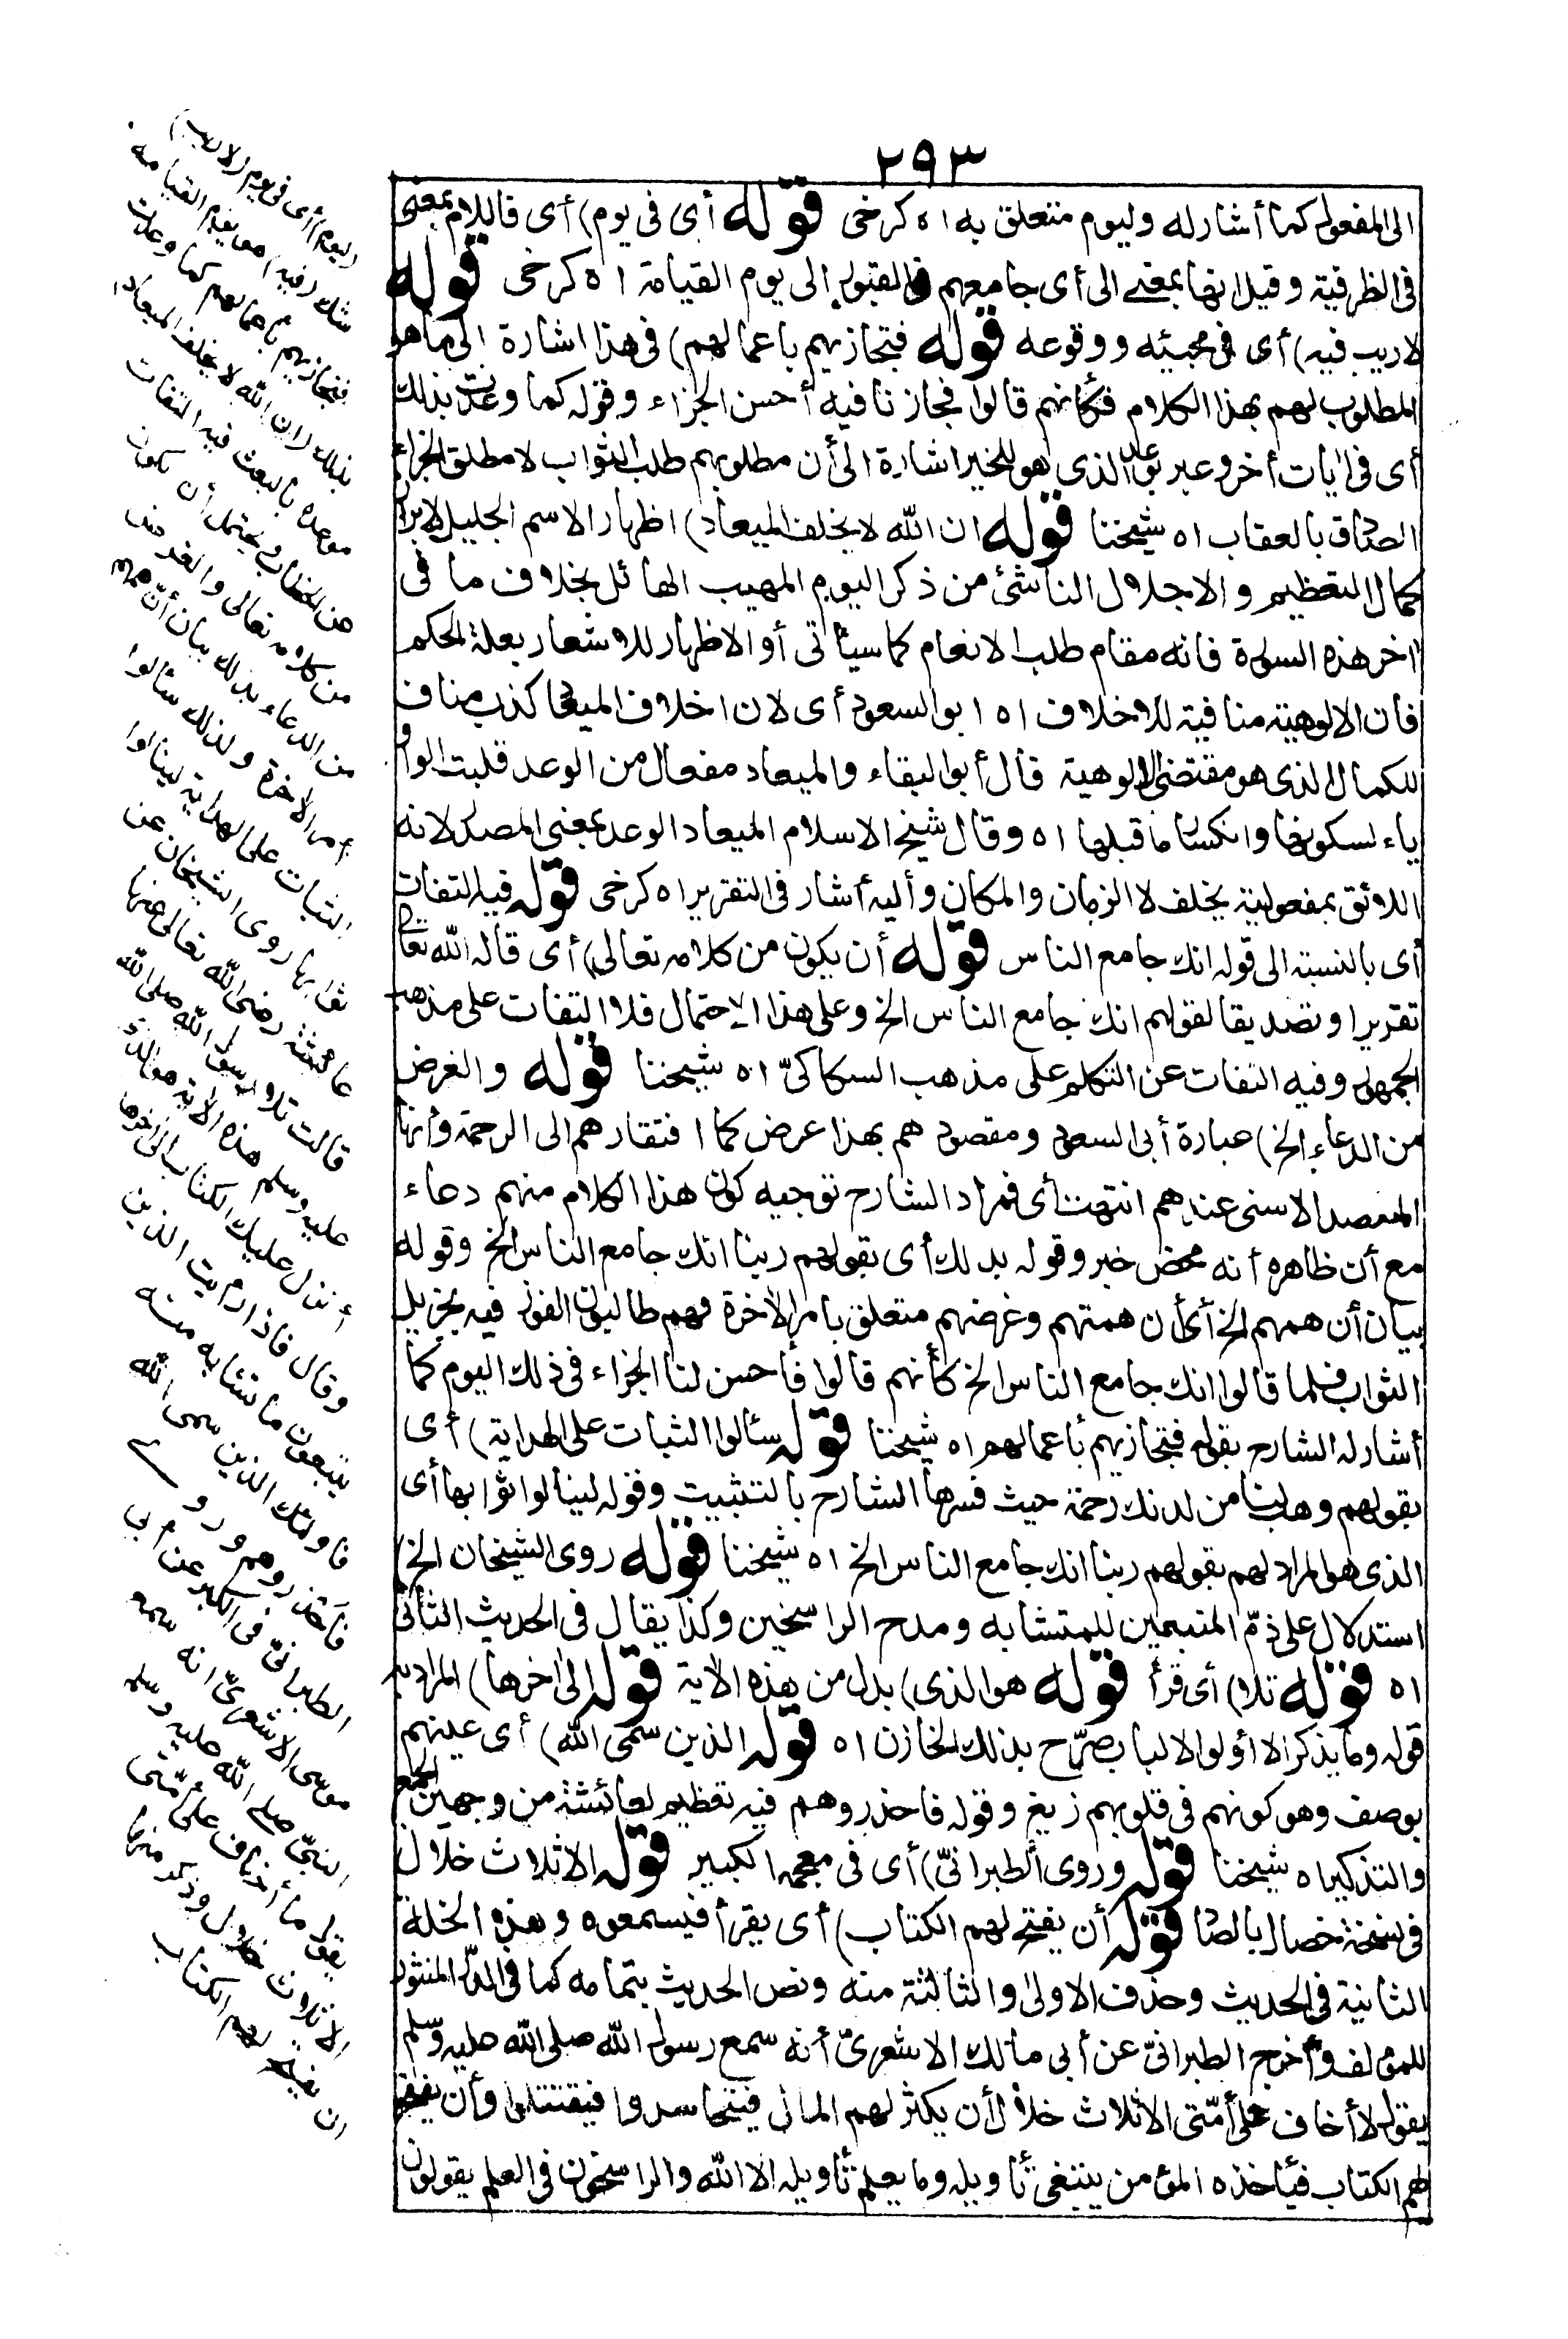 ٢٩٣
الى المفعول كما أشار له وليوم متعلق به اه كرخى قوله أى فى يوم) أى فاللام بمعنى
فى الظرفية وقيل انها بمعنى الى أى جامعهم فى القبور الى يوم القيامة اه كرخى قوله
لاريب فيه) أى فى مجيئه ووقوعه قوله فتجازيهم باعمالهم) فى هذا اشارة الى ما هو
المطلوب لهم بهذا الكلام فكأنهم قالوا فجازنا فيه أحسن الجزاء وقوله كما وعدت بذلك
أى فى ايات أخر وعبر بوعد الذى هو للخير اشارة الى أن مطلوبهم طلب الثواب لا مطلق الجزاء
الصادق بالعقاب اه شيخنا قوله ان الله لا يخلف الميعاد) اظهار الاسم الجليل لابراز
كمال التعظيم والاجلال الناشئ من ذكر اليوم المهيب الهائل بخلاف ما فى
اخر هذه السورة فانه مقام طلب الانعام كما سيأتى أو الاظهار للاشعار بعلة الحكم
فان الالوهية منافية للاخلاف اه ابو السعود أى لان اخلاف الميعاد كذب مناف
للكمال الذى هو مقتضى الالوهية قال أبو البقاء والميعاد مفعال من الوعد قلبت الواو
ياء لسكونها وانكسار ما قبلها اه وقال شيخ الاسلام الميعاد الوعد بمعنى المصدر لانه
اللائق بمفعولية يخلف لا الزمان والمكان وأليه أشار فى التقرير اه كرخى قوله فيه التفات
أى بالنسبة الى قوله انك جامع الناس قوله أن يكون من كلامه تعالى) أى قاله الله تعالى
تقريرا وتصديقا لقولهم انك جامع الناس الخ وعلى هذا الاحتمال فلا التفات على مذهب
الجمهور وفيه التفات عن التكلم على مذهب السكاكىّ اه شيخنا قوله والغرض
من الدعاء الخ) عبارة أبى السعود ومقصودهم بهذا عرض كما افتقارهم الى الرحمة وأنها
المقصد الاسنى عندهم انتهت أى فمراد الشارح توجيه كون هذا الكلام منهم دعاء
مع أن ظاهره أنه محض خبر وقوله بذلك أى بقولهم ربنا انك جامع الناس الخ وقوله
بيان أن همهم الخ أى أن همتهم وغرضهم متعلق بامر الآخرة فهم طالبون الفوز فيه بجزيل
الثواب فلما قالوا انك جامع الناس الخ كأنهم قالوا فأحسن لنا الجزاء فى ذلك اليوم كما
أشار له الشارح بقوله فتجازيهم بأعمالهم اه شيخنا قوله سألوا الثبات على الهداية) أى
بقولهم وهب لنا من لدنك رحمة حيث فسرها الشارح بالتثبيت وقوله لينالوا ثوابها أى
الذى هو المراد لهم بقولهم ربنا انك جامع الناس الخ اه شيخنا قوله روى الشيخان الخ)
استدلال على ذمّ المتبعين للمتشابه ومدح الراسخين وكذا يقال فى الحديث الثانى
اه قوله تلا) أى قرأ قوله هو الذى) بدل من هذه الاية قوله الى اخرها) المراد به
قوله وما يذكر الا أولوا الالباب صرّح بذلك الخازن اه قوله الذين سمّى الله) أى عينهم
بوصف وهو كونهم فى قلوبهم زيغ وقوله فاحذروهم فيه تعظيم لعائشة من وجهين الجمع
والتذكير اه شيخنا قوله وروى الطبرانىّ) أى فى معجمه الكبير قوله الا ثلاث خلال
فى نسخة خصال بالصاد قوله أن يفتح لهم الكتاب) أى يقرأ فيسمعوه وهذه الخلة
الثانية فى الحديث وحذف الاولى والثالثة منه ونص الحديث بتمامه كما فى الدر المنثور
للمؤلف وأخرج الطبرانىّ عن أبى مالك الاشعرىّ أنه سمع رسول الله صلى الله عليه وسلم
يقول لا أخاف على أمّتى الا ثلاث خلال أن يكثر لهم المال فيتحاسدوا فيقتتلوا وأن يفتح
لهم الكتاب فيأخذه المؤمن يبتغى تأويله وما يعلم تأويله الا الله والراسخون فى العلم يقولون
ليوم) أى فى يوم (لاريب)
شك (فيه) هو يوم القيامة
فتجازيهم بأعمالهم كما وعدت
بذلك (ان الله لا يخلف الميعاد)
موعده بالبعث فيه التفات
عن الخطاب ويحتمل أن يكون
من كلامه تعالى والغرض
من الدعاء بذلك بيان أنّ همهم
أمر الاخرة ولذلك سألوا
الثبات على الهداية لينالوا
ثوابها روى الشيخان عن
عائشة رضى الله تعالى عنها
قالت تلا رسول الله صلى الله
عليه وسلم هذه الاية هو الذى
أنزل عليك الكتاب الى اخرها
وقال فاذا رأيت الذين
يتبعون ما تشابه منه
فاولئك الذين سمى الله
فاحذروهم وروى
الطبرانىّ فى الكبير عن أبى
موسى الاشعرىّ انه سمع
النبىّ صلى الله عليه وسلم
يقول ما أخاف على أمّتى
الا ثلاث خلال وذكر منها
ان يفتح لهم الكتاب